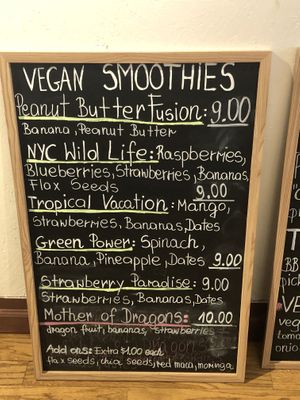 VEGAN SMOOTHIES
Peanut Butter Fusion: 9.00
Banana, Peanut Butter
NYC Wild Life: Raspberries,
Blueberries, Strawberries, Bananas,
Flax Seeds 9.00
Tropical Vacation: Mango,
Strawberries, Bananas, Dates
Green Power: Spinach,
Banana, Pineapple, Dates 9.00
Strawberry Paradise: 9.00
Strawberries, Bananas, Dates
Mother of Dragons: 10.00
dragon fruit, bananas, strawberries
Add ons: Extra $1.00 each
flax seeds, chia seeds, red maca, moringa